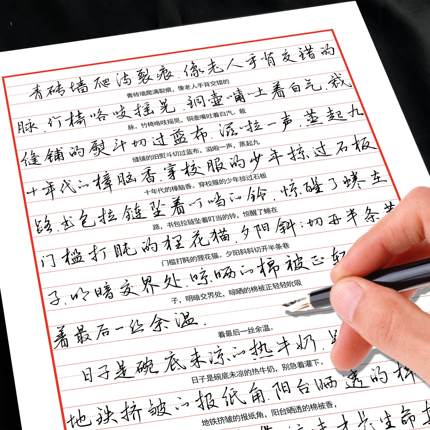 青砖墙爬满裂痕，像老人手背交错的
青砖墙爬满裂痕，像老人手背交错的
脉，竹椅咯吱摇晃，铜壶嘴吐着白气，裁
脉，竹椅咯吱摇晃，铜壶嘴吐着白气，裁
缝铺的熨斗切过蓝布，滋啦一声，蒸起九
缝铺的旧熨斗切过蓝布，滋啦一声，蒸起九
十年代的樟脑香，穿校服的少年掠过石板
十年代的樟脑香，穿校服的少年掠过石板
路，书包拉链坠着叮当的铃，惊醒了蜷在
路，书包拉链坠着叮当的铃，惊醒了蜷在
门槛打盹的狸花猫，夕阳斜斜切开半条巷
门槛打盹的狸花猫，夕阳斜斜切开半条巷
子，明暗交界处，晾晒的棉被正轻
子，明暗交界处，晾晒的棉被正轻轻吮吸
着最后一丝余温。
着最后一丝余温。
日子是碗底未凉的热牛奶，
日子是碗底未凉的热牛奶，别急着灌下，
地铁挤皱的报纸角，阳台晒透的棉
地铁挤皱的报纸角，阳台晒透的棉被香，
才是生命